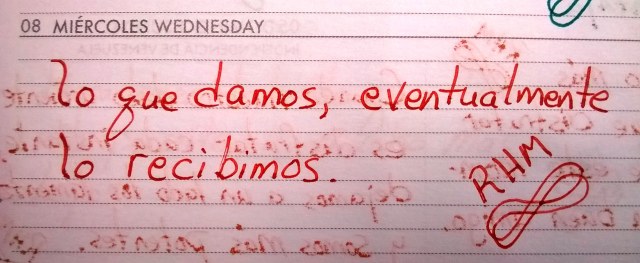 08 MIÉRCOLES WEDNESDAY
lo que damos, eventualmente
lo recibimos.
RHM